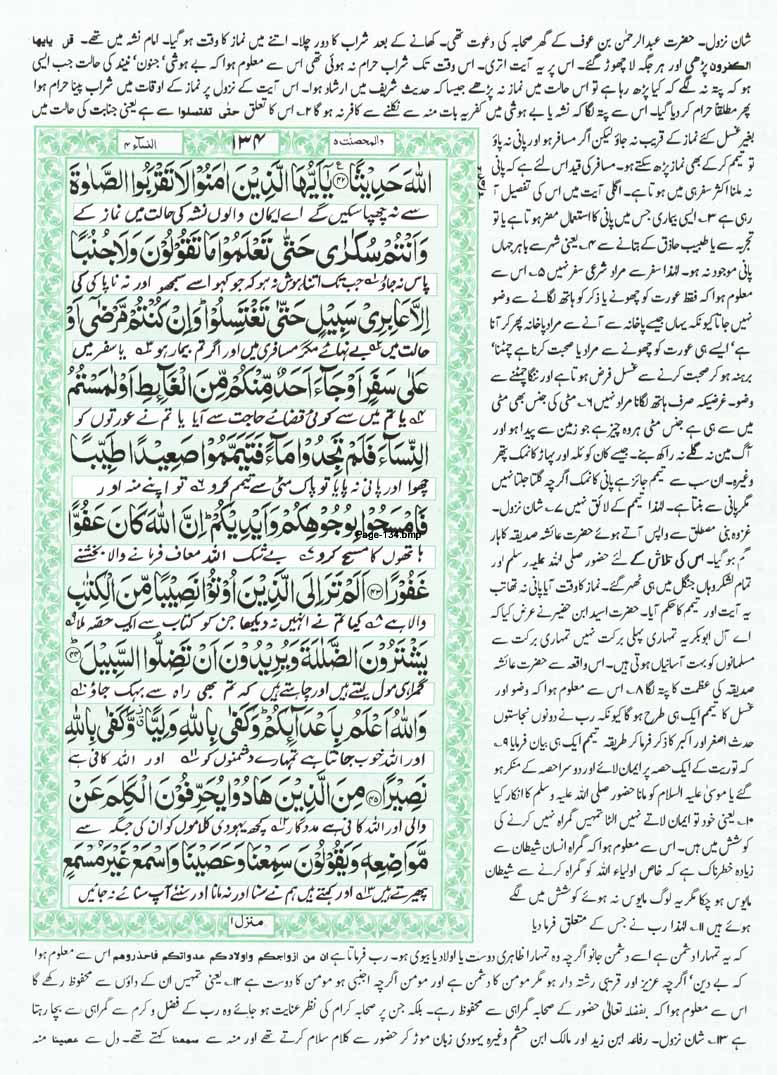 شان نزول۔ حضرت عبدالرحمٰن بن عوف کے گھر صحابہ کی دعوت تھی۔ کھانے کے بعد شراب کا دور چلا۔ اتنے میں نماز کا وقت ہو گیا۔ امام نشہ میں تھے۔ قل یایھا
الکفرون پڑھی اور ہر جگہ لا چھوڑ گئے۔ اس پر یہ آیت اتری۔ اس وقت تک شراب حرام نہ ہوئی تھی اس سے معلوم ہوا کہ بے ہوشی' جنون' نیند کی حالت جب ایسی
ہو کہ پتہ نہ لگے کہ کیا پڑھ رہا ہے تو اس حالت میں نماز نہ پڑھے جیسا کہ حدیث شریف میں ارشاد ہوا۔ اس آیت کے نزول پر نماز کے اوقات میں شراب پینا حرام ہوا
پھر مطلقا حرام کر دیا گیا۔ اس سے پتہ لگا کہ نشہ یا بے ہوشی میں کفریہ بات منہ سے نکلنے سے کافر نہ ہو گا ۲۔ اس کا تعلق حتٰی تغتسلوا سے ہے یعنی جنابت کی حالت میں
بغیر غسل کئے نماز کے قریب نہ جاؤ لیکن اگر مسافر ہو اور پانی نہ پاؤ
تو تیمم کر کے بھی نماز پڑھ سکتے ہو۔ مسافر کی قید اس لئے ہے کہ پانی
نہ ملنا اکثر سفر ہی میں ہوتا ہے۔ اگلی آیت میں اس کی تفصیل آ
رہی ہے ۳۔ ایسی بیماری جس میں پانی کا استعمال مضر ہوتا ہے یا تو
تجربہ سے یا طبیب حاذق کے بتانے سے ۴۔ یعنی شہر سے باہر جہاں
پانی موجود نہ ہو۔ لہٰذا سفر سے مراد شرعی سفر نہیں ۵۔ اس سے
معلوم ہوا کہ فقط عورت کو چھونے یا ذکر کو ہاتھ لگانے سے وضو
نہیں جاتا کیونکہ یہاں جیسے پاخانہ سے آنے سے مراد پاخانہ پھر کر آنا
ہے' ایسے ہی عورت کو چھونے سے مراد یا صحبت کرنا ہے چمٹنا'
برہنہ ہو کر صحبت کرنے سے غسل فرض ہوتا ہے اور ننگا چمٹنے سے
وضو۔ غرضیکہ صرف ہاتھ لگانا مراد نہیں ۶۔ مٹی کی جنس بھی مٹی
میں سے ہی ہے جنس مٹی ہر وہ چیز ہے جو زمین سے پیدا ہو اور
آگ میں نہ گلے نہ راکھ بنے۔ جیسے کان کوئلہ اور پہاڑ کا نمک پتھر
وغیرہ۔ ان سب سے تیمم جائز ہے پانی کا نمک اگرچہ گلتا جلتا نہیں
مگر پانی سے بنتا ہے۔ لہٰذا تیمم کے لائق نہیں ۷۔ شان نزول۔
غزوہ بنی مصطلق سے واپس آتے ہوئے حضرت عائشہ صدیقہ کا ہار
گم ہو گیا۔ اس کی تلاش کے لئے حضور صلی اللہ علیہ وسلم اور
تمام لشکر وہاں جنگل میں ہی ٹھہر گئے۔ نماز کا وقت آیا پانی نہ تھا تب
یہ آیت اور تیمم کا حکم آیا۔ حضرت اسید ابن حضیر نے عرض کیا کہ
اے آل ابوبکر یہ تمہاری پہلی برکت نہیں تمہاری برکت سے
مسلمانوں کو بہت آسانیاں ہوتی ہیں۔ اس واقعہ سے حضرت عائشہ
صدیقہ کی عظمت کا پتہ لگا ۸۔ اس سے معلوم ہوا کہ وضو اور
غسل کا تیمم ایک ہی طرح ہو گا کیونکہ رب نے دونوں نجاستوں
حدث اصغر اور اکبر کا ذکر فرما کر طریقہ تیمم ایک ہی بیان فرمایا ۹۔
کہ توریت کے ایک حصہ پر ایمان لائے اور دوسرا حصہ کے منکر ہو
گئے یا موسیٰ علیہ السلام کو مانا حضور صلی اللہ علیہ وسلم کا انکار کیا
۱۰۔ یعنی خود تو ایمان لاتے نہیں الٹا تمہیں گمراہ نہیں کرنے کی
کوشش میں ہیں۔ اس سے معلوم ہوا کہ گمراہ انسان شیطان سے
زیادہ خطرناک ہے کہ خاص اولیاء اللہ کو گمراہ کرنے سے شیطان
مایوس ہو چکا مگر یہ لوگ مایوس نہ ہوئے کوشش میں لگے
ہوئے ہیں ۱۱۔ لہٰذا رب نے جس کے متعلق فرما دیا
والمحصنت ۵
۱۳۴
النساء ۴
اللّٰهَ حَدِيْثًا ﴿۴۲﴾ يٰۤاَيُّهَا الَّذِيْنَ اٰمَنُوْا لَا تَقْرَبُوا الصَّلٰوةَ
سے نہ چھپا سکیں گے اے ایمان والوں نشہ کی حالت میں نماز کے
وَاَنْتُمْ سُكٰرٰى حَتّٰى تَعْلَمُوْا مَا تَقُوْلُوْنَ وَلَا جُنُبًا
پاس نہ جاؤ جب تک اتنا ہوش نہ ہو کہ جو کہو اسے سمجھو اور نہ ناپاکی کی
اِلَّا عَابِرِيْ سَبِيْلٍ حَتّٰى تَغْتَسِلُوْا وَاِنْ كُنْتُمْ مَّرْضٰۤى اَوْ
حالت میں بے نہائے مگر مسافری میں اور اگر تم بیمار ہو یا سفر میں
عَلٰى سَفَرٍ اَوْ جَآءَ اَحَدٌ مِّنْكُمْ مِّنَ الْغَآئِطِ اَوْ لٰمَسْتُمُ
یا تم میں سے کوئی قضائے حاجت سے آیا یا تم نے عورتوں کو
النِّسَآءَ فَلَمْ تَجِدُوْا مَآءً فَتَيَمَّمُوْا صَعِيْدًا طَيِّبًا
چھوا اور پانی نہ پایا تو پاک مٹی سے تیمم کرو تو اپنے منہ اور
فَامْسَحُوْا بِوُجُوْهِكُمْ وَاَيْدِيْكُمْ اِنَّ اللّٰهَ كَانَ عَفُوًّا
Page-134.bmp
ہاتھوں کا مسح کرو بے شک اللہ معاف فرمانے والا بخشنے
غَفُوْرًا ﴿۴۳﴾ اَلَمْ تَرَ اِلَى الَّذِيْنَ اُوْتُوْا نَصِيْبًا مِّنَ الْكِتٰبِ
والا ہے کیا تم نے انہیں نہ دیکھا جن کو کتاب سے ایک حصہ ملا
يَشْتَرُوْنَ الضَّلٰلَةَ وَيُرِيْدُوْنَ اَنْ تَضِلُّوا السَّبِيْلَ ﴿۴۴﴾
گمراہی مول لیتے ہیں اور چاہتے ہیں کہ تم بھی راہ سے بہک جاؤ
وَاللّٰهُ اَعْلَمُ بِاَعْدَآئِكُمْ وَكَفٰى بِاللّٰهِ وَلِيًّا وَّكَفٰى بِاللّٰهِ
اور اللہ خوب جانتا ہے تمہارے دشمنوں کو اور اللہ کافی ہے
نَصِيْرًا ﴿۴۵﴾ مِنَ الَّذِيْنَ هَادُوْا يُحَرِّفُوْنَ الْكَلِمَ عَنْ
والی اور اللہ کافی ہے مددگار کچھ یہودی کلاموں کو ان کی جگہ سے
مَّوَاضِعِهٖ وَيَقُوْلُوْنَ سَمِعْنَا وَعَصَيْنَا وَاسْمَعْ غَيْرَ مُسْمَعٍ
پھیرتے ہیں اور کہتے ہیں ہم نے سنا اور نہ مانا اور سنئے آپ سنائے نہ جائیں
منزل ۱
کہ یہ تمہارا دشمن ہے اسے دشمن جانو اگرچہ وہ تمہارا ظاہری دوست یا اولاد یا بیوی ہو۔ رب فرماتا ہے ان من ازواجکم واولادکم عدوالکم فاحذروھم اس سے معلوم ہوا
کہ بے دین' اگرچہ عزیز اور قریبی رشتہ دار ہو مگر مومن کا دشمن ہے اور مومن اگرچہ اجنبی ہو مومن کا دوست ہے ۱۲۔ یعنی تمہیں ان کے داؤں سے محفوظ رکھے گا
اس سے معلوم ہوا کہ بفضلہ تعالیٰ حضور کے صحابہ گمراہی سے محفوظ رہے۔ بلکہ جن پر صحابہ کرام کی نظر عنایت ہو جائے وہ رب کے فضل و کرم سے گمراہی سے بچا رہتا
ہے ۱۳۔ شان نزول۔ رفاعہ ابن زید اور مالک ابن حشم وغیرہ یہودی زبان موڑ کر حضور سے کلام سلام کرتے تھے اور منہ سے سمعنا کہتے تھے۔ دل سے عصینا منہ